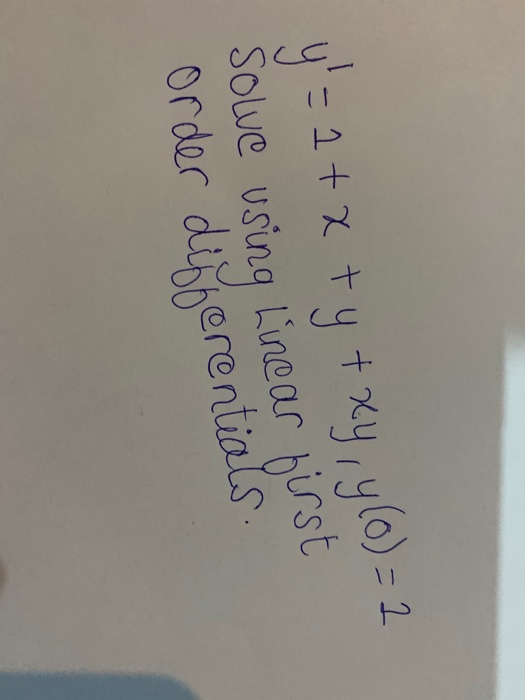 y' = 1 + x + y + xy, y(0) = 1
Solve using Linear first
order differentials.